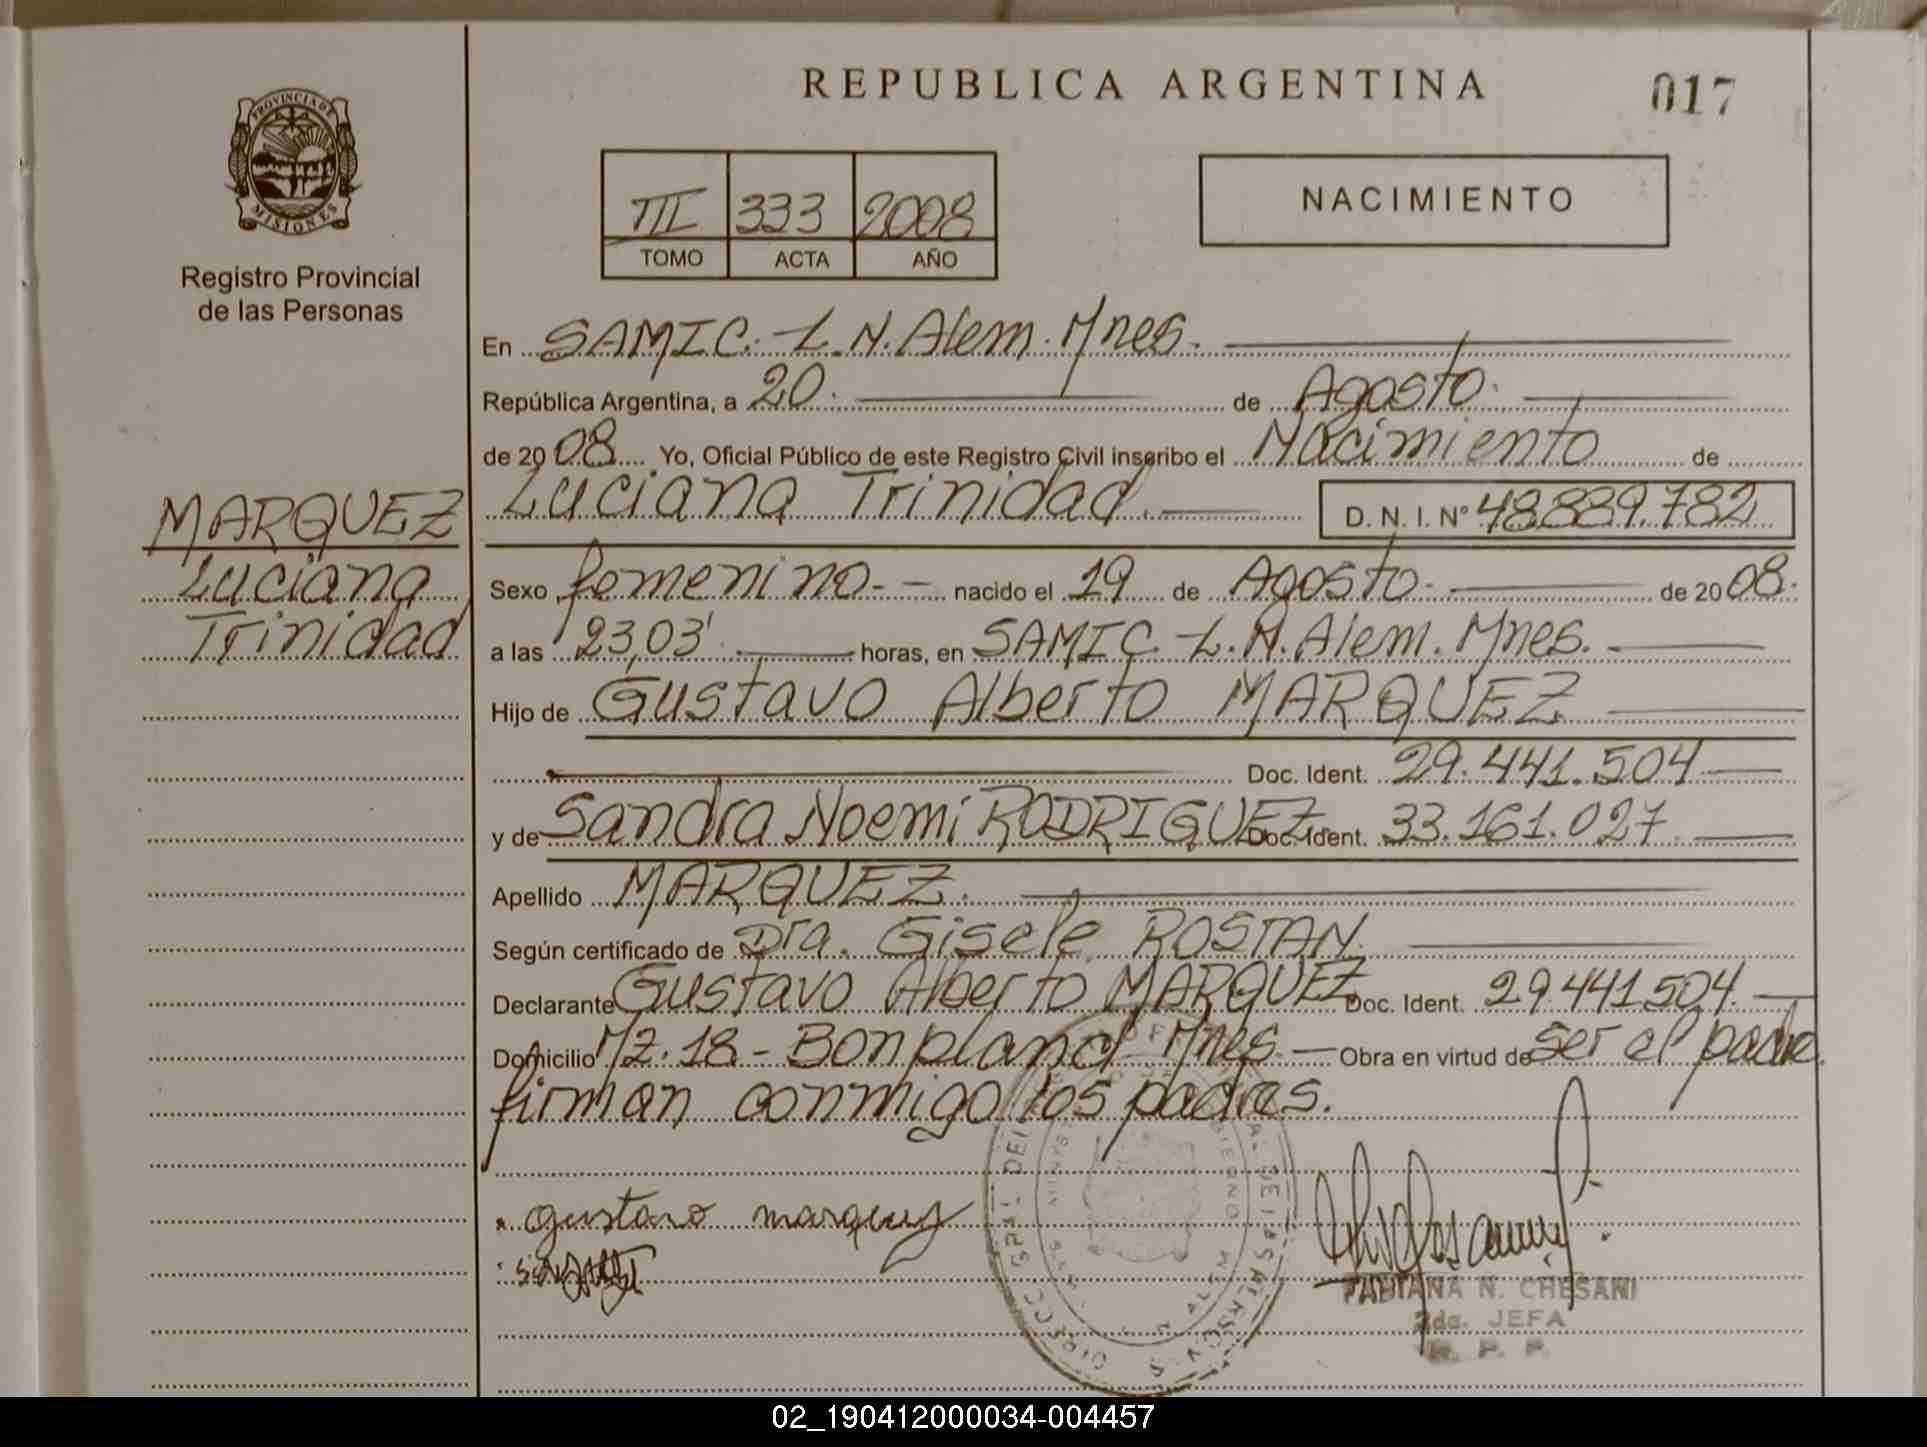 REPUBLICA ARGENTINA
017
PROVINCIA DE
MISIONES
Registro Provincial
de las Personas
III 333 2008
TOMO ACTA AÑO
NACIMIENTO
En SAMIC. L. N. Alem. Mnes.
República Argentina, a 20. de Agosto.
de 2008. Yo, Oficial Público de este Registro Civil inscribo el Nacimiento de
Luciana Trinidad. D. N. I. Nº 48.889.782
MARQUEZ
Luciana
Trinidad
Sexo femenino.- nacido el 19 de Agosto. de 2008.
a las 23,03' horas, en SAMIC. L. N. Alem. Mnes.
Hijo de Gustavo Alberto MARQUEZ
Doc. Ident. 29.441.504
y de Sandra Noemi RODRIGUEZ Doc. Ident. 33.161.027.
Apellido MARQUEZ.
Según certificado de Dra. Gisele ROSTAN.
Declarante Gustavo Alberto MARQUEZ Doc. Ident. 29.441.504.
Domicilio Mz. 18 - Bonpland Mnes. Obra en virtud de ser el padre
firman conmigo los padres.
gustavo marquez
FABIANA N. CHESANI
2da. JEFA
R. P. P.
02_190412000034-004457